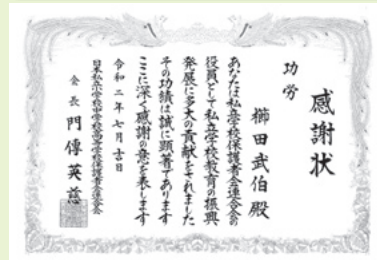 感謝状
功労
櫛田武伯殿
あなたは私学校保護者会連合会の
役員として私立学校教育の振興
発展に多大の貢献をされました
その功績は誠に顕著であります
ここに深く感謝の意を表します
令和二年七月吉日
日本私立小学校中学校高等学校保護者会連合会
会長 門傳英慈